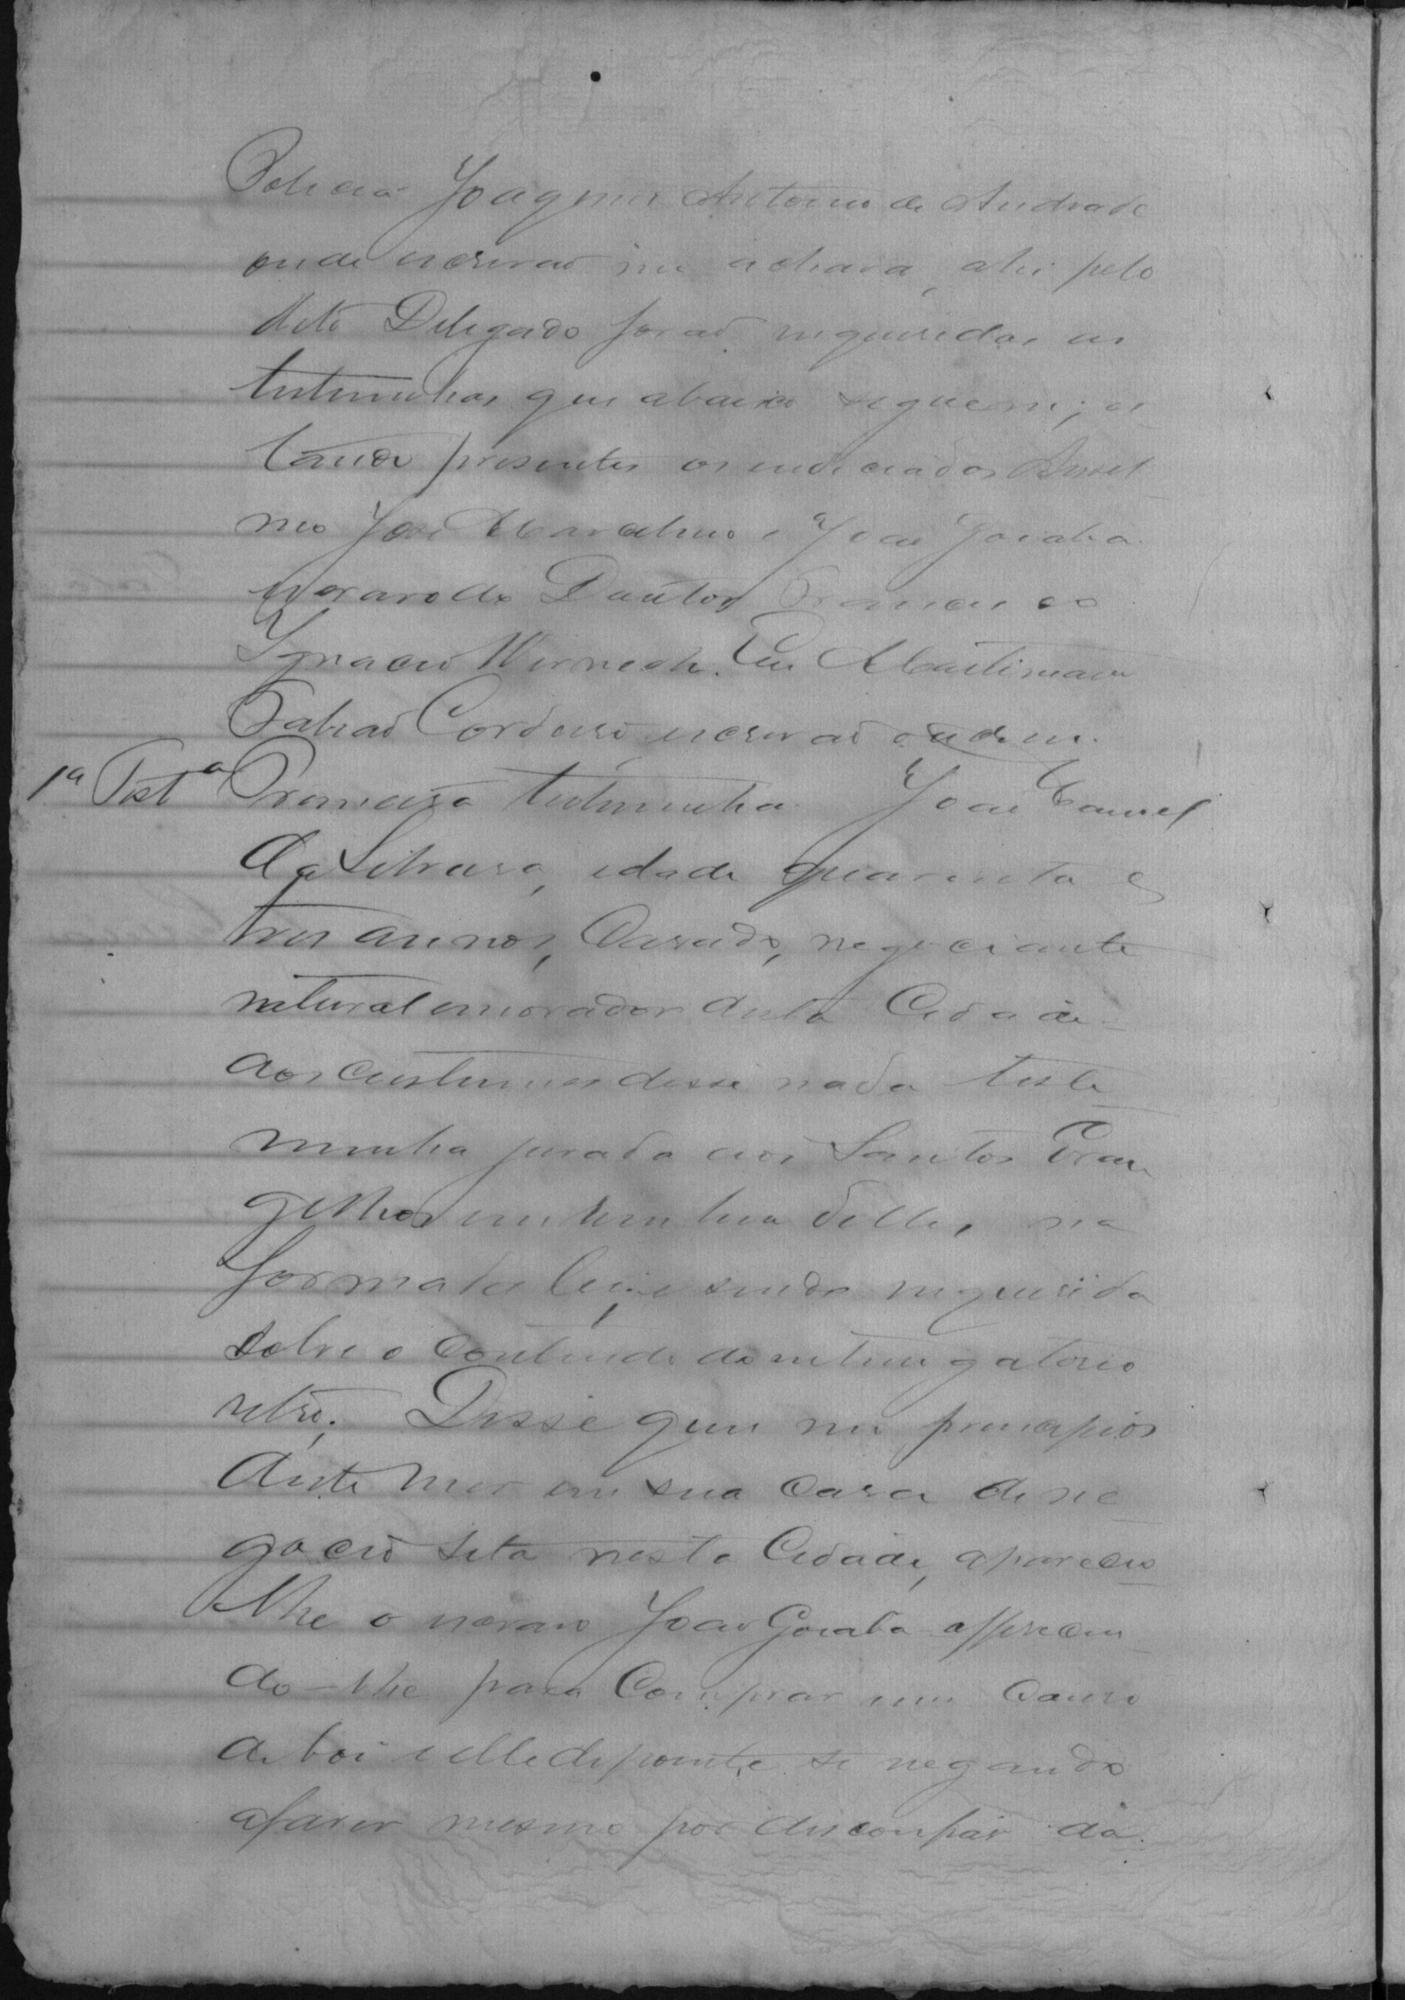 Policia Joaquim Antonio de Andrade
onde escrivaõ me achava, ahi pelo
dito Delegado foraõ inqueridas as
testimunhas que abaixo seguem; es-
tando presentes os indiciados Ansel-
mo José Marcelino e João Goiaba
escravo do Doutor Francisco
Ignacio Werneck. Eu
escrivaõ
1ª Testª Primeira testimunha João
da Silveira, idade quarenta e
tres annos, Casado, negociante
natural e morador desta Cidade
aos custumes disse nada teste-
munha jurada aos Santos Evan-
gelhos em um livro delles, na
forma da lei; e sendo inquerida
sobre o contheudo do interrogatorio
retro. Disse que nos principios
deste mez em sua casa de ne-
gocio sita nesta Cidade, apareceo-
lhe o escravo João Goiaba offrecen-
do-lhe para Comprar um Couro
de boi e elle depoente se negando
afazer mesmo por disconfiar da